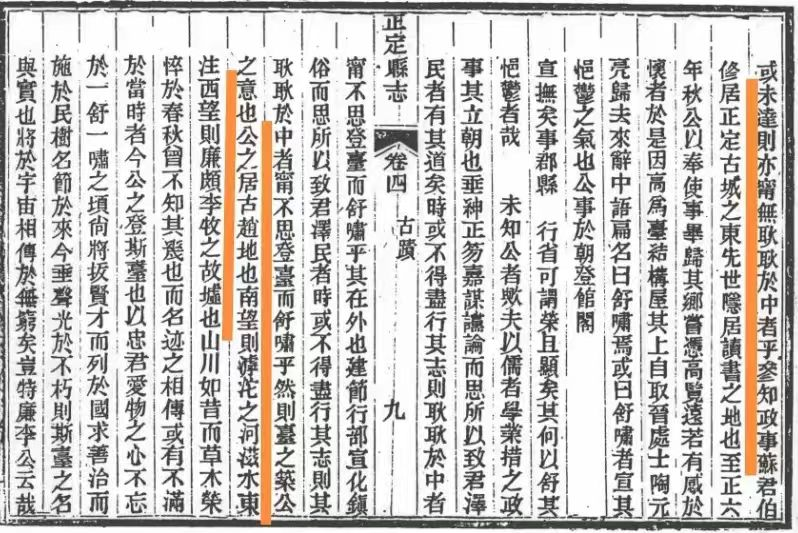 或未達則亦甯無耿耿於中者乎參知政事蘇君伯
修居正定古城之東先世隱居讀書之地也至正六
年秋公以奉使事畢歸其鄉嘗憑高覽遠若有感於
懷者於是因高爲臺結構屋其上自取晉處士陶元
亮歸去來辭中語扁名曰舒嘯焉或曰舒嘯者宣其
悒鬱之氣也公事於朝登館閣
宣撫矣事郡縣 行省可謂榮且顯矣其何以舒其
悒鬱者哉 未知公者歟夫以儒者學業措之政
事其立朝也垂紳正笏嘉謀讜論而思所以致君澤
民者有其道矣時或不得盡行其志則耿耿於中者
正定縣志 卷四 古蹟 九
甯不思登臺而舒嘯乎其在外也建節行部宣化鎮
俗而思所以致君澤民者時或不得盡行其志則其
耿耿於中者甯不思登臺而舒嘯乎然則臺之築公
之意也公之居古趙地也南望則滹沱之河滋水東
注西望則廉頗李牧之故墟也山川如昔而草木榮
悴於春秋曾不知其幾也而名迹之相傳或有不滿
於當時者今公之登斯臺也以忠君愛物之心不忘
於一舒一嘯之頃尚將拔賢才而列於國求善治而
施於民樹名節於來今垂聲光於不朽則斯臺之名
與實也將於宇宙相傳於無窮矣豈特廉李公云哉